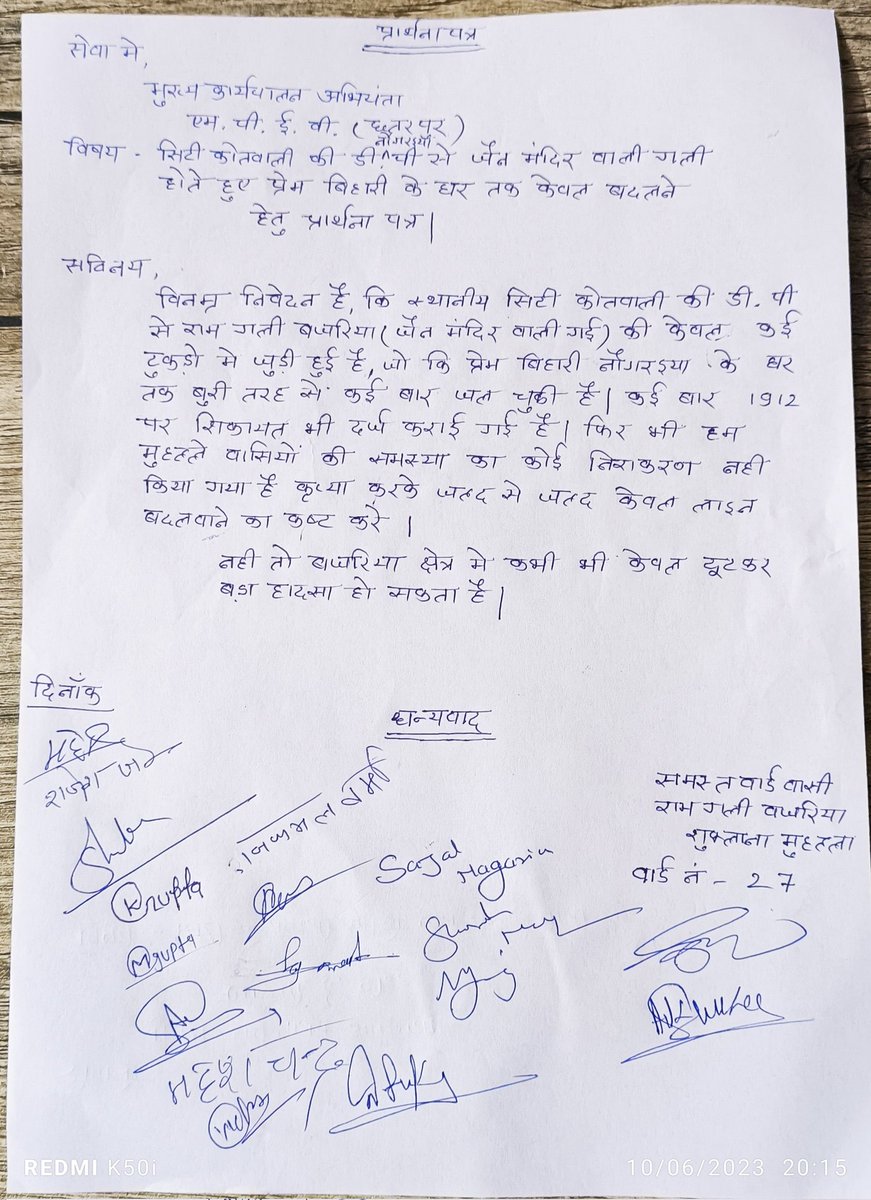 प्रार्थना पत्र
सेवा मे,
मुख्य कार्यपालन अभियंता
एम. पी. ई. वी. (छतरपुर)
नौगरइया
विषय - सिटी कोतवाली की डी पी से जैन मंदिर वाली गली
होते हुए प्रेम बिहारी के घर तक केवल बदलने
हेतु प्रार्थना पत्र |
सविनय,
विनम्र निवेदन है, कि स्थानीय सिटी कोतवाली की डी. पी
से राम गली बजरिया (जैन मंदिर वाली गई) की केवल कई
टुकडो मे जुडी हुई है, जो कि प्रेम बिहारी नौगरइया के घर
तक बुरी तरह से कई बार जल चुकी है | कई बार 1912
पर शिकायत भी दर्ज कराई गई है | फिर भी हम
मुहल्ले वासियों की समस्या का कोई निराकरण नही
किया गया है कृप्या करके जल्द से जल्द केवल लाइन
बदलवाने का कष्ट करे |
नही तो बजरिया क्षेत्र मे कभी भी केवल टूटकर
बडा हादसा हो सकता है |
दिनाँक
धन्यवाद
समस्त वार्ड वासी
राम गली बजरिया
शुक्लाना मुहल्ला
वार्ड नं - 27
महेश
राजेश जैन
Kgupta
Sajal
Mgupta
महेश चन्द्र
REDMI K50i
10/06/2023 20:15